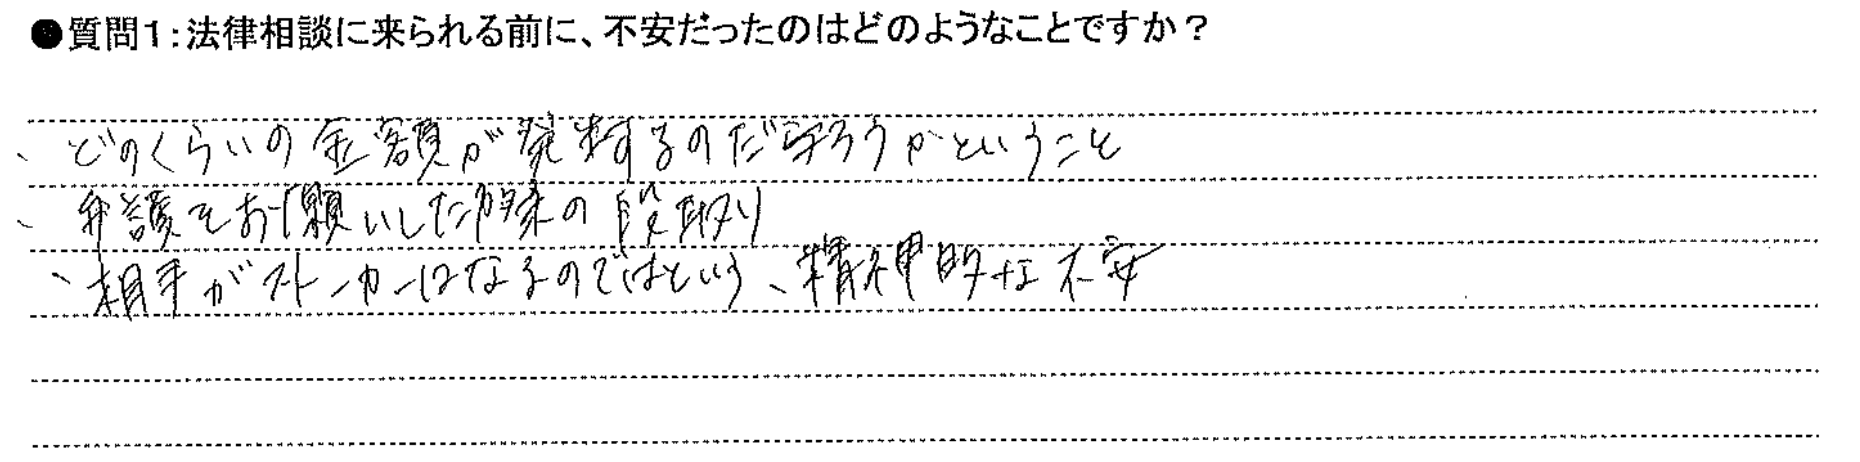 ●質問1:法律相談に来られる前に、不安だったのはどのようなことですか?
、どのくらいの金額が発生するのだろうかということ
、弁護をお願いした際の段取り
、相手がストーカーになるのではという、精神的な不安